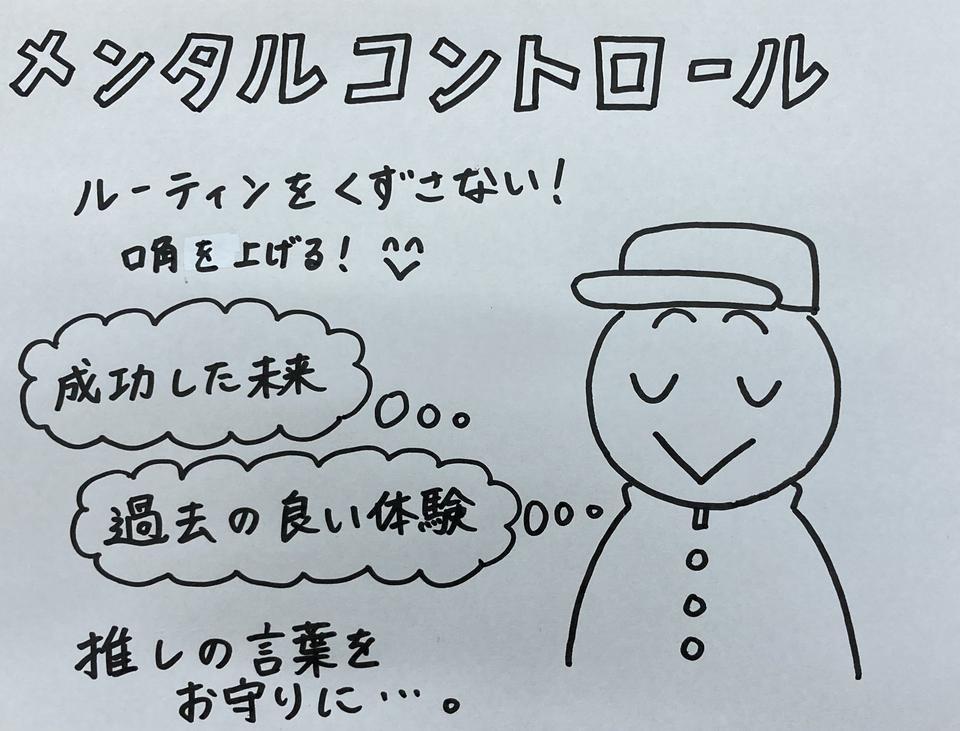 メンタルコントロール
ルーティンをくずさない!
口角を上げる!
成功した未来
過去の良い体験
推しの言葉を
お守りに…。